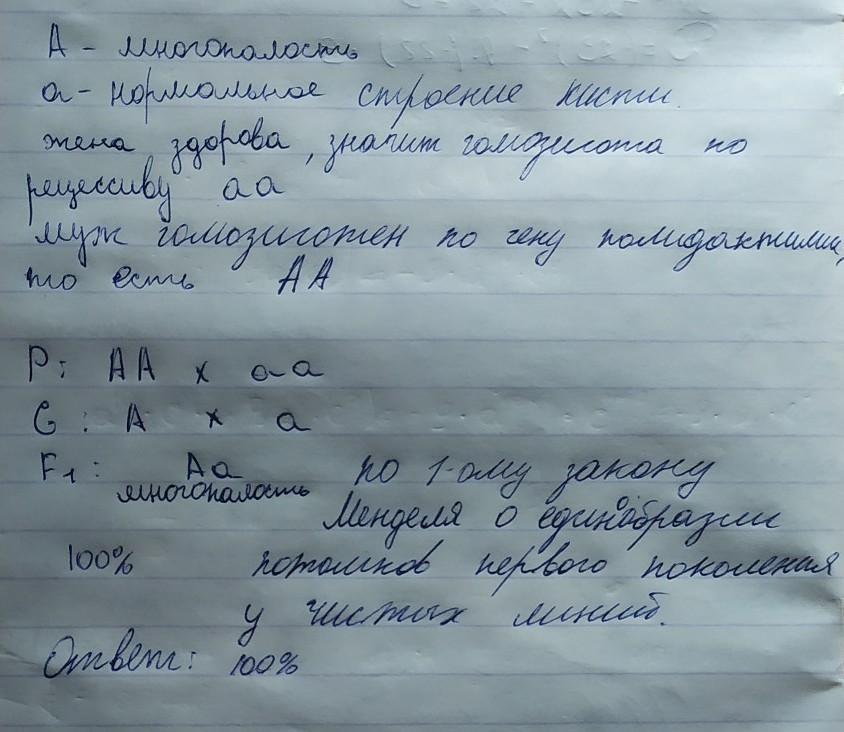 А - многопалость
а - нормальное строение кисти.
жена здорова, значит гомозигота по
рецессиву аа
муж гомозиготен по гену полидактилии,
то есть АА
P: АА х аа
G: А х а
F1: Аа по 1-ому закону
многопалость
Менделя о единообразии
100% потомков первого поколения
у чистых линий.
Ответ: 100%